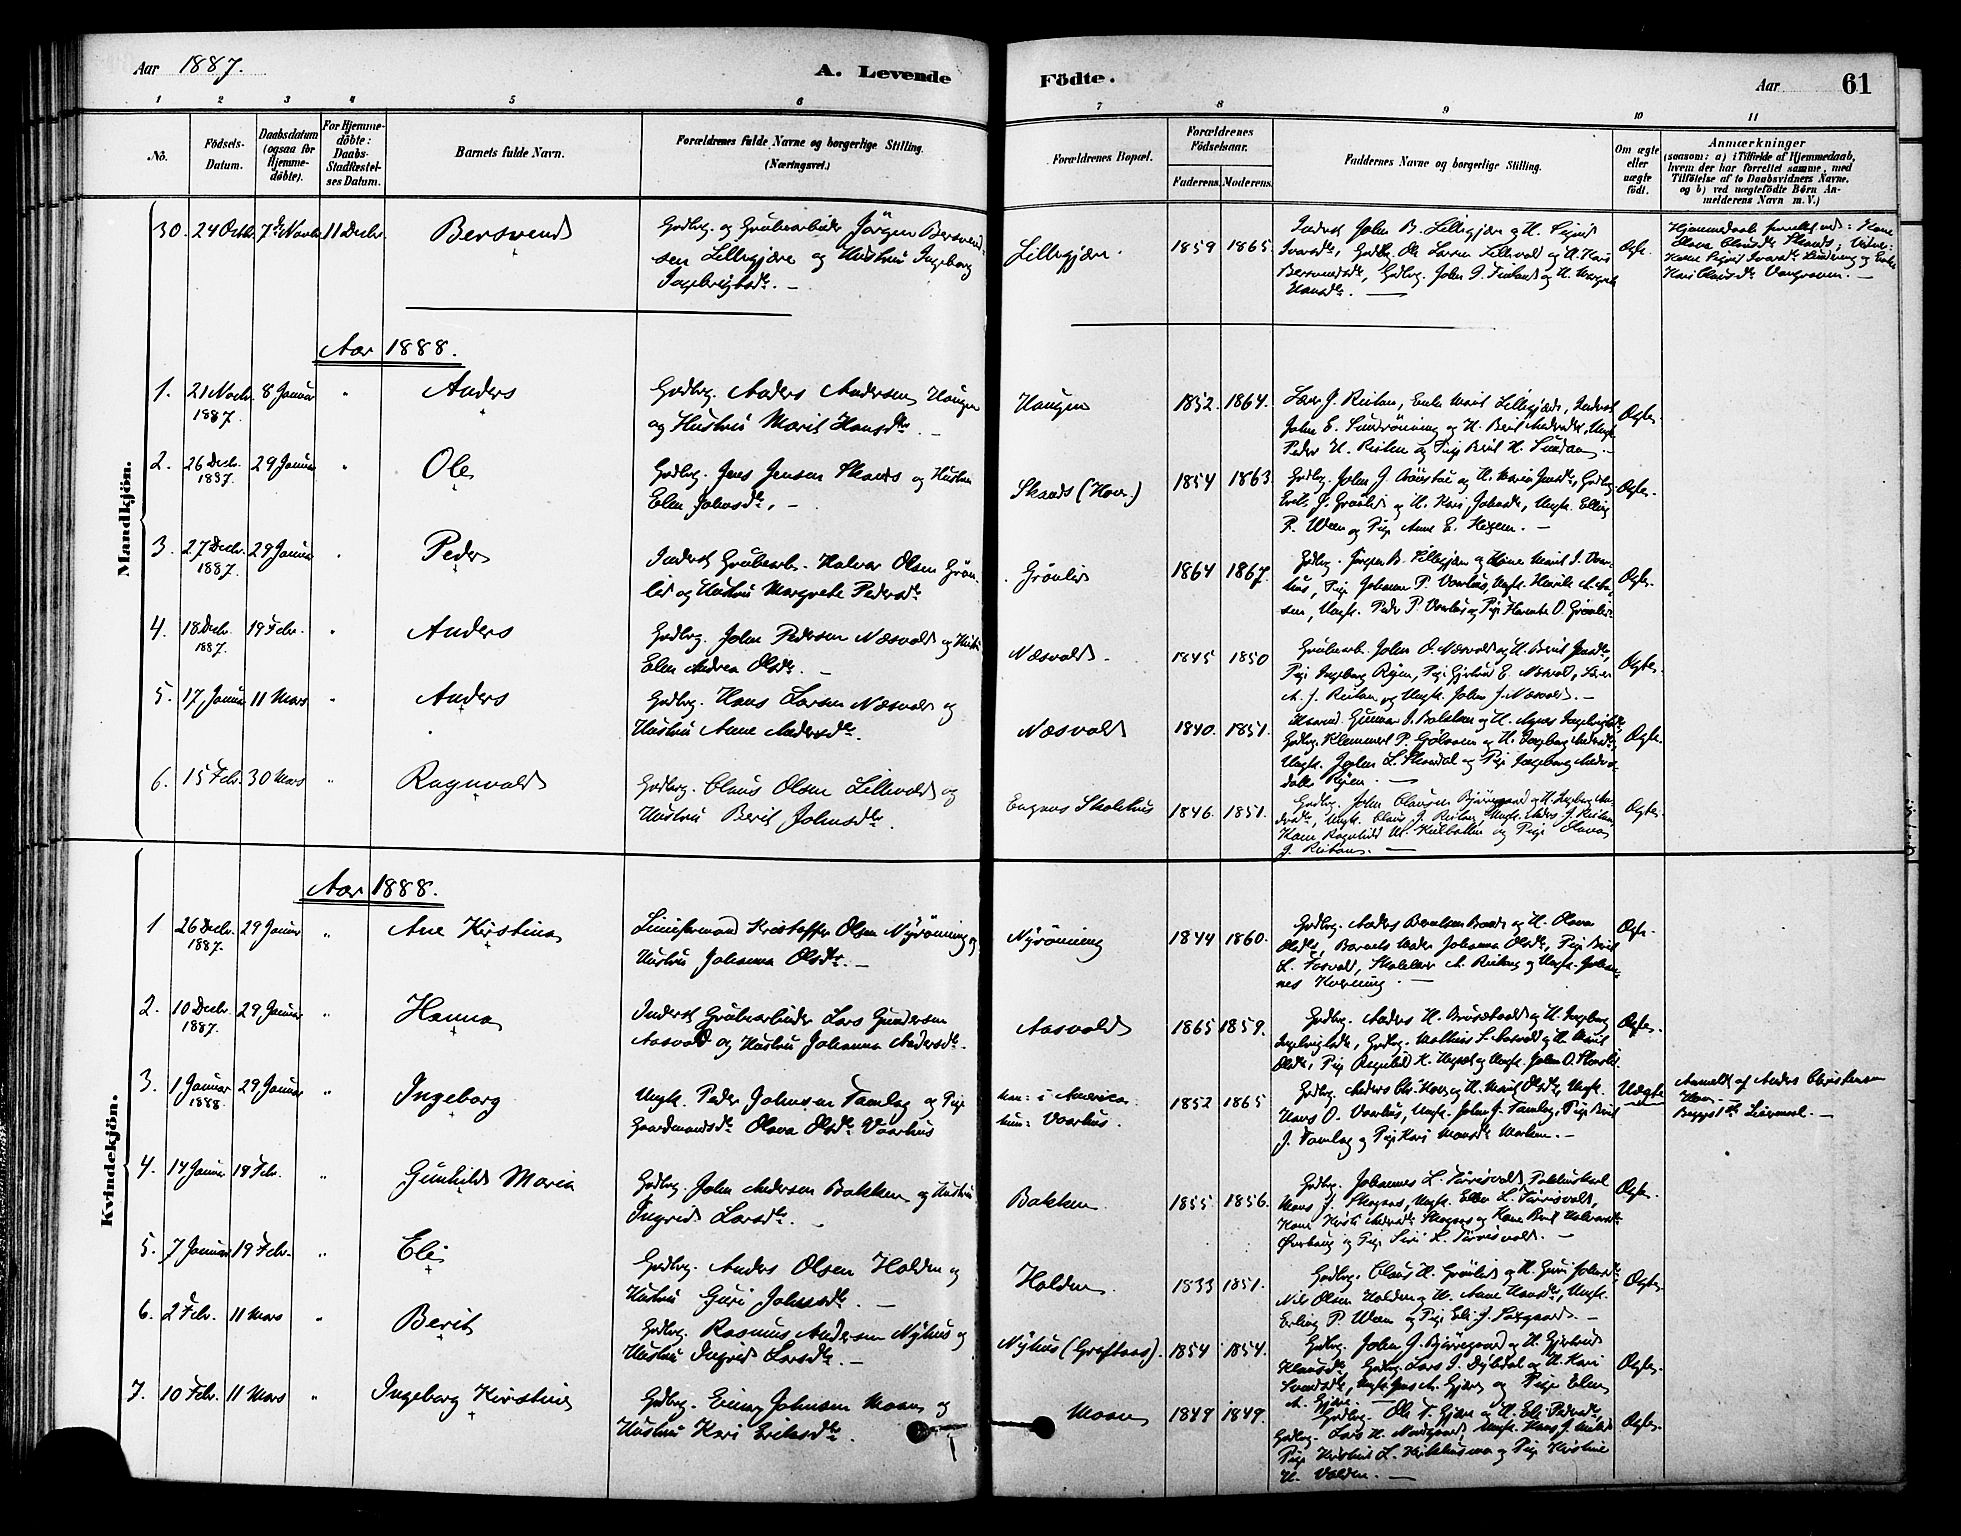 Aar 1887.
A. Levende
Födte.
Aar
61
1 2 3 4 5 6 7 8 9 10 11
No.
Födsels-
Datum.
Daabsdatum
(ogsaa for
Hjemme-
döbte).
For Hjemme-
döbte:
Daabs-
Stadfæstel-
ses Datum.
Barnets fulde Navn.
Forældrenes fulde Navne og borgerlige Stilling.
(Næringsvei.)
Forældrenes Bopæl.
Forældrenes
Födselsaar.
Faderens. Moderens.
Faddernes Navne og borgerlige Stilling.
Om ægte
eller
uægte
födt.
Anmærkninger
(saasom: a) i Tilfælde af Hjemmedaab,
hvem der har forrettet samme, med
Tilföielse af to Daabsvidners Navne.
og b) ved uægtefödte Børn An-
melderens Navn m. V.)
Mandkjön.
30. 24 Octbr. 7de Novbr. 11 Decbr. Bersvend
Gdbrg. og Grubearbeider Jörgen Bersvend-
sen Lillegjære og Hustru Ingeborg
Ingebrigtsdr. —
Lillegjære. 1859 1865.
Inderst John B. Lillegjære og H. Sigrid
Ivarsdr., Gdbrg. Ole Larsen Lillevold og H. Kari
Bersvendsdr., Gdbrg. John J. og H. Margrete
Hansdr. —
Ægte.
Hjemmedaab forrettet ved: Kone
Olava Olausdr. Skands; Vidner:
Kone Sigrid Ivarsdr. og Enke
Kari Olausdr. Vangraven. —
Aar 1888.
1. 21 Novbr. 1887. 8 Januar " Anders
Gdbrg. Anders Andersen Haugen
og Hustru Marit Hansdr. —
Haugen 1852. 1864.
Lærer J. Reitan, Enke Marit Lillegjære, Inderst
John E. Sundrönning og H. Berit Andersdr., Ungk.
Peder H. Reitan og Pige Berit H. —
Ægte.
2. 26 Decbr. 1887. 29 Januar " Ole
Gdbrg. Jens Jensen Skands og Hustru
Elen Johnsdr. —
Skands (Hov.) 1854 1863.
Gdbrg. John J. og H. Maria Jensdr., Gdbrg.
Erik J. Graali og H. Kari Johnsdr., Ungk. Elling
P. Ween og Pige Anne E. —
Ægte.
3. 27 Decbr. 1887. 29 Januar " Peder
Inderst Grubearb. Halvar Olsen Grön-
lid og Hustru Margrete Pedersdr.
Grönlid 1864 1867.
Gdbrg. Jörgen B. Lillegjære og Kone Marit J. Vaar-
hus, Pige Johanna P. Vaarhus, Ungk. Henrik A.
sen, Ungk. Peder P. Vaarhus og Pige O. Grönlid.
Ægte.
4. 18 Decbr. 1887. 19 Febr. " Anders
Gdbrg. John Pedersen Næsvold og Hustru
Elen Andrea Olsdr. —
Næsvold. 1845 1850
Grubearb. John O. Næsvold og H. Berit Jensdr.,
Pige Ingeborg Ryen, Pige Gjertrud E. Næsvold, Lærer
A. J. Reitan og Ungk. John J. Næsvold. —
Ægte.
5. 17 Januar 11 Mars " Anders
Gdbrg. Hans Larsen Næsvold og
Hustru Anne Andersdr.
Næsvold 1840. 1851.
Gunnar J. Bakken og H. Agnes Ingebrigtsdr.,
Gdbrg. Klemmert P. og H. Ingeborg Andersdr.,
Ungk. John L. og Pige Ingeborg Anders-
datter Ryen. —
Ægte.
6. 15 Febr. 30 Mars " Ragnvald
Gdbrg. Olaus Olsen Lillevold og
Hustru Berit Johnsdr.
Engens Skolehus 1846. 1851.
Gdbrg. John Olausen Bjørgaard og H. Ingeborg An-
dersdr., Ungk. Olaus J. Reitan, Ungk. Anders J. Reitan,
Kone Ragnhild og Pige Olava
J. Reitan. —
Ægte.
Kvindekjön.
Aar 1888.
1 26 Decbr. 1887. 29 Januar " Ane Kirstina
Kristoffer Olsen Nyrönning og
Hustru Johanna Olsdr. —
Nyrönning 1844 1860.
Gdbrg. Anders og H. Olava
Olsdr., Barnets Moder Johanna Olsdr., Pige Berit
L. Fosvold, Skolelærer A. Reitan og Ungk. Johan-
nes. —
Ægte.
2. 10 Decbr. 1887. 29 Januar " Hanna
Inderst Grubearbeider Lars Gundersen
Aasvold og Hustru Johanna Andersdr.
Aasvold 1865 1859.
Gdbrg. Anders H. og H. Ingeborg
Ingebrigtsdr., Gdbrg. Mathias L. Aasvold og H. Marit
Olsdr., Pige Ragnhild K. og Ungk. John O.
Ægte.
3. 1 Januar 1888. 29 Januar " Ingeborg
Ungk. Peder Johnsen Tamlag og Pige
Gaardmandsdr. Olava Olsdr. Vaarhus
han: i America
hun: Vaarhus. 1852 1865
Gdbrg. Anders Chr. Hov og H. Marit Olsdr., Ungk.
Hans O. Vaarhus, Ungk. John J. Tamlag, Pige Berit
J. Tamlag og Pige Kari Monsdr. —
Uægte
Anmeldt af Anders Christensen
Hov. —
Begges 1ste Leiermaal. —
4. 14 Januar 18 Febr. " Gunhild Maria
Gdbrg. John Andersen Bakken og Hustru
Ingrid Larsdr. —
Bakken 1855 1856.
Gdbrg. Johannes L.
J. Skogaas, Ungk. L.
Kone Andersdr. Skogaas og Kone Berit Halvarsdr.
og Pige Siri L. —
Ægte.
5. 7 Januar 19 Febr. " Eli
Gdbrg. Anders Olsen Holden og
Hustru Guri Johnsdr. —
Holden. 1833 1851.
Gdbrg. Claus H. Grönlid og H. Guri Johnsdr.
Nils Olsen Holden og H. Anne Hansdr., Ungk.
Erling P. Ween og Pige Eli J. —
Ægte.
6. 2 Febr. 11 Mars " Berit
Gdbrg. Rasmus Andersen Nyhus og
Hustru Ingrid Larsdr. —
Nyhus (Graftaas). 1854 1854.
Gdbrg. John J. Bjørgaard og H. Gjertrud
Klausdr., Gdbrg. Lars J. Dybdal og H. Kari
Svendsdr., Ungk. Jens A. Gjære og Pige Elen
A. Gjære. —
Ægte.
7. 10 Febr. 11 Mars " Ingeborg Kirstine
Gdbrg. Einar Johnsen Moan og
Hustru Kari Eriksdr.
Moan 1849 1849.
Gdbrg. Ole T. Gjære og H. Eli Pedersdr.,
Gdbrg. Lars H. Nordgaard, Ungk. Hans J.
Pige Kirstine L. og Pige Kirstine
H. Volden. —
Ægte.